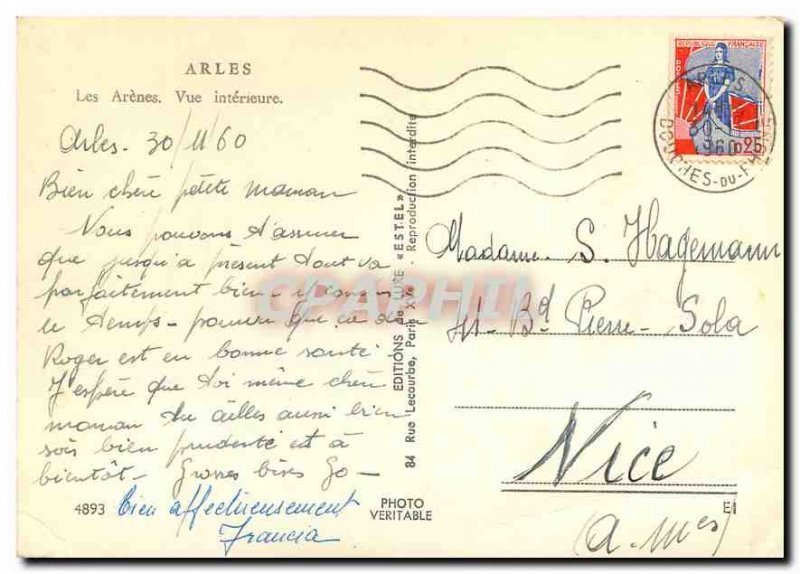 ARLES
Les Arènes. Vue intérieure.
Arles - 30/11/60
Bien chère petite maman
Nous pouvons t'assurer
que jusqu'a présent tout va
parfaitement bien
le temps - pourvu que ça
Roger est en bonne santé
J'espère que toi même chère
maman tu ailles aussi bien
sois bien prudente et à
bientôt - Grosses bises
bien affectueusement
Francia
4893
PHOTO
VERITABLE
EDITIONS de LUXE «ESTEL»
84 Rue Lecourbe, Paris XVe Reproduction interdite
CPAPHIL
REPUBLIQUE FRANÇAISE
POSTES
0,25
ARLES
30-
1960
BOUCHES-DU-RHONE
Madame S. Hagemann
Bd Pierre-Sola
Nice
(A. Mes)
EI